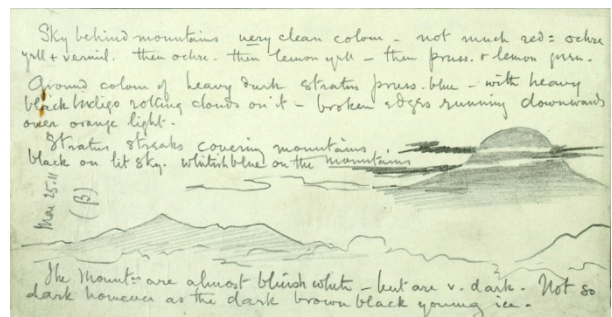 Sky behind mountains very clean colour - not much red = ochre
yell + vermil. then ochre. then lemon yell - then pruss. & lemon green.
Ground colour of heavy dark stratus pruss. blue - with heavy
black Indigo rolling clouds on it - broken edges running downwards
over orange light.
Stratus streaks covering mountains
black on lit sky. whitish blue on the mountains
Mar 25. 11
(β)
The Mounts are almost bluish white - but are v. dark. Not so
dark however as the dark brown black young ice.